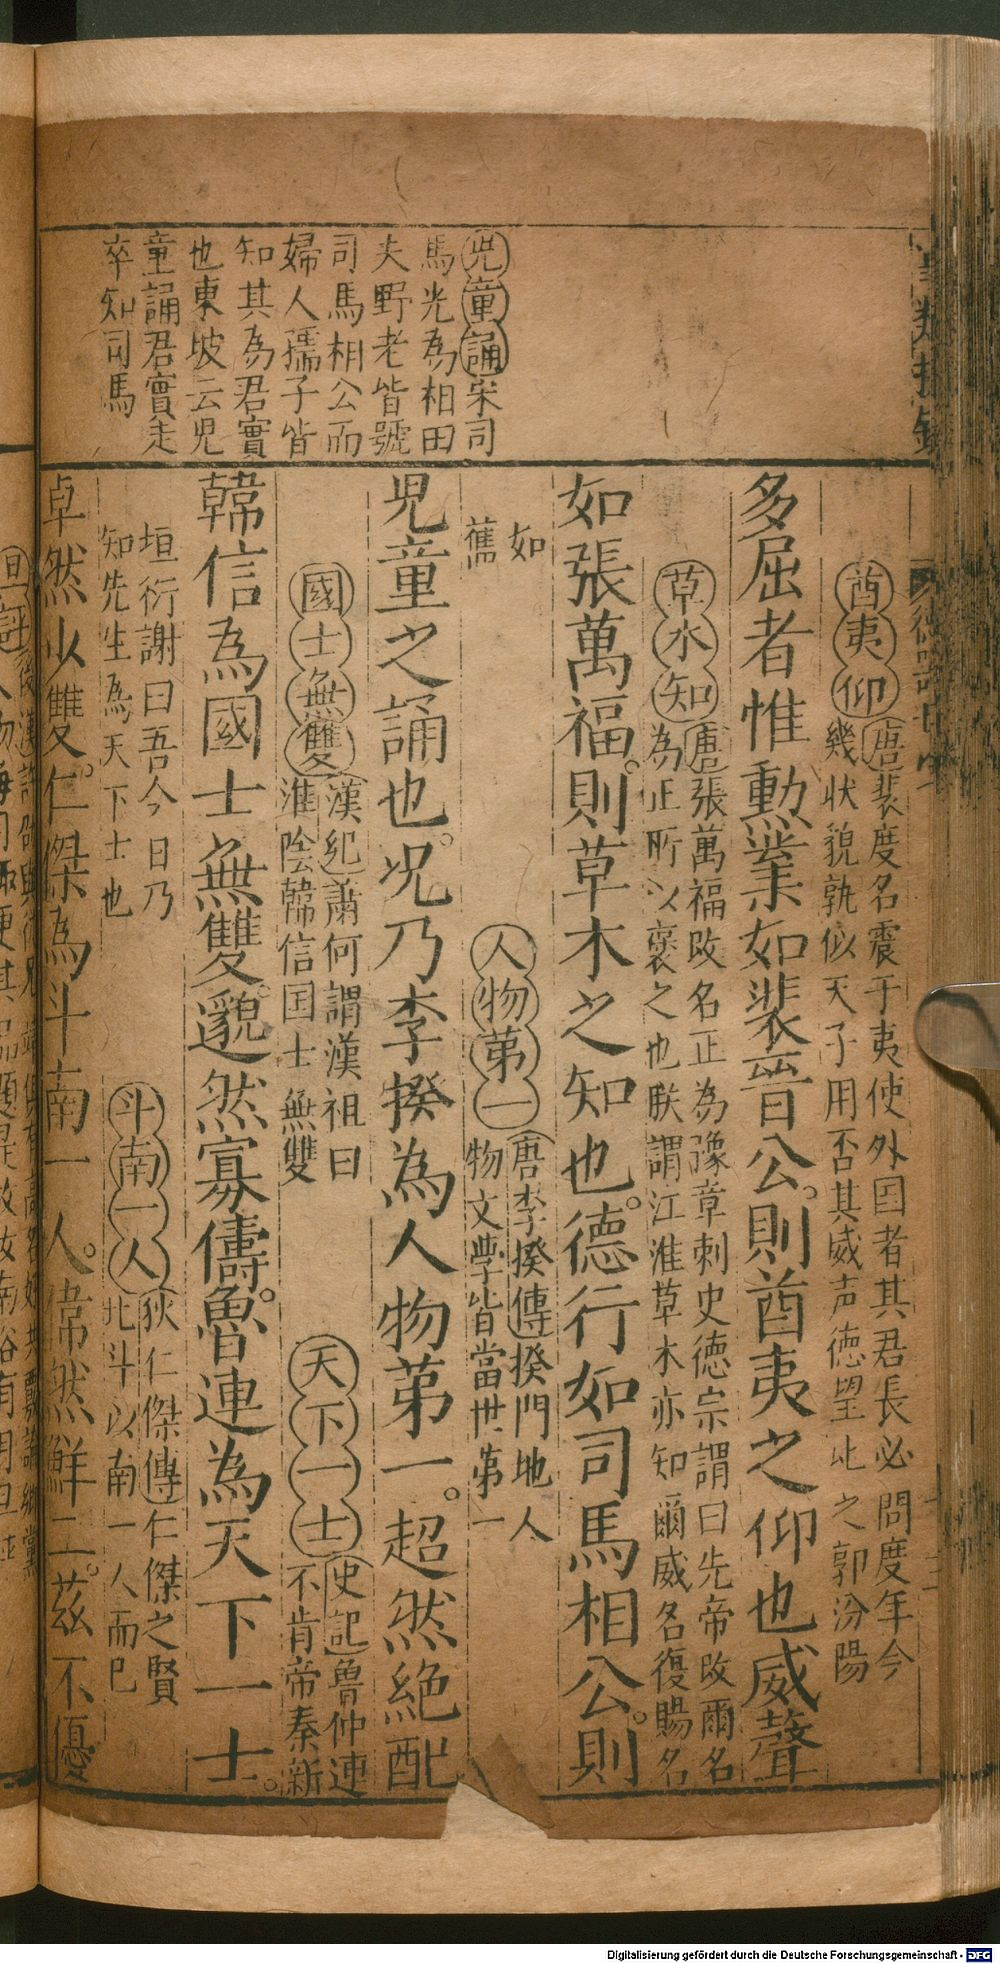 兒童誦宋司
馬光為相田
夫野老皆號
司馬相公而
婦人孺子皆
知其為君實
也東坡云児
童誦君實走
卒知司馬
酋夷仰
唐裴度名震于夷使外国者其君長必問度年今
幾状貌孰似天子用否其威声德望比之郭汾陽
多屈者惟勳業如裴晉公。則酋夷之仰也威聲
草木知
唐張萬福改名正為豫章刺史德宗謂曰先帝改爾名
為正所以褒之也朕謂江淮草木亦知爾威名復賜名
如張萬福。則草木之知也。德行如司馬相公。則
如
舊
人物第一
唐李揆傳揆門地人
物文學皆當世第一
児童之誦也。况乃李揆為人物第一。超然絕配
國士無雙
漢紀蕭何謂漢祖曰
淮陰韓信国士無雙
天下一士
史記魯仲連
不肯帝秦新
韓信為國士無雙。邈然寡儔。魯連為天下一士。
垣衍謝曰吾今日乃
知先生為天下士也
斗南一人
狄仁傑傳仁傑之賢
北斗以南一人而已
卓然少雙。仁傑為斗南一人。偉然鮮二。茲不優
Digitalisierung gefördert durch die Deutsche Forschungsgemeinschaft - DFG